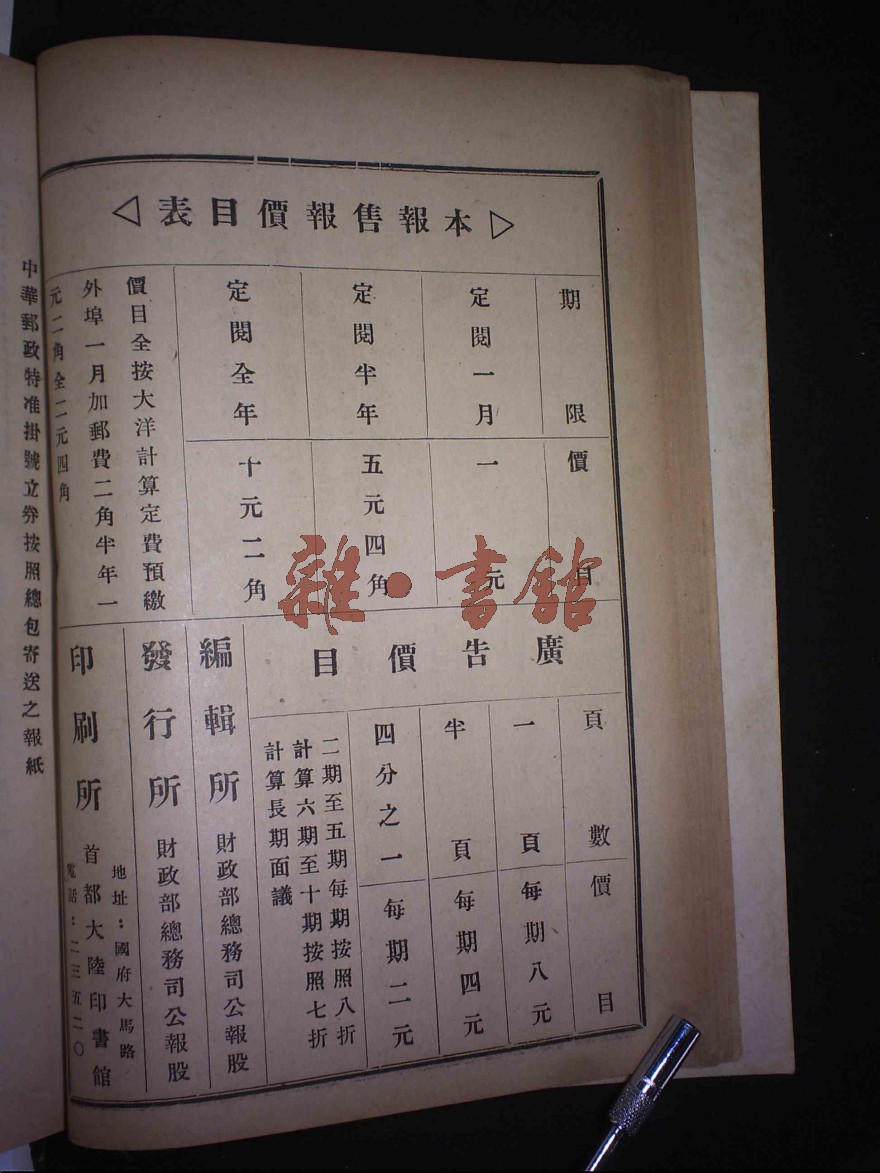 本報售報價目表
期限
價目
定閱一月
一元
定閱半年
五元四角
定閱全年
十元二角
價目全按大洋計算定費預繳
外埠一月加郵費二角半年一
元二角全二元四角
廣告價目
頁數
價目
一頁
每期八元
半頁
每期四元
四分之一
每期二元
二期至五期每期按照八折
計算六期至十期按照七折
計算長期面議
編輯所 財政部總務司公報股
發行所 財政部總務司公報股
印刷所 首都大陸印書館
地址：國府大馬路
電話：二三五二〇
中華郵政特准掛號立券按照總包寄送之報紙
雜·書館